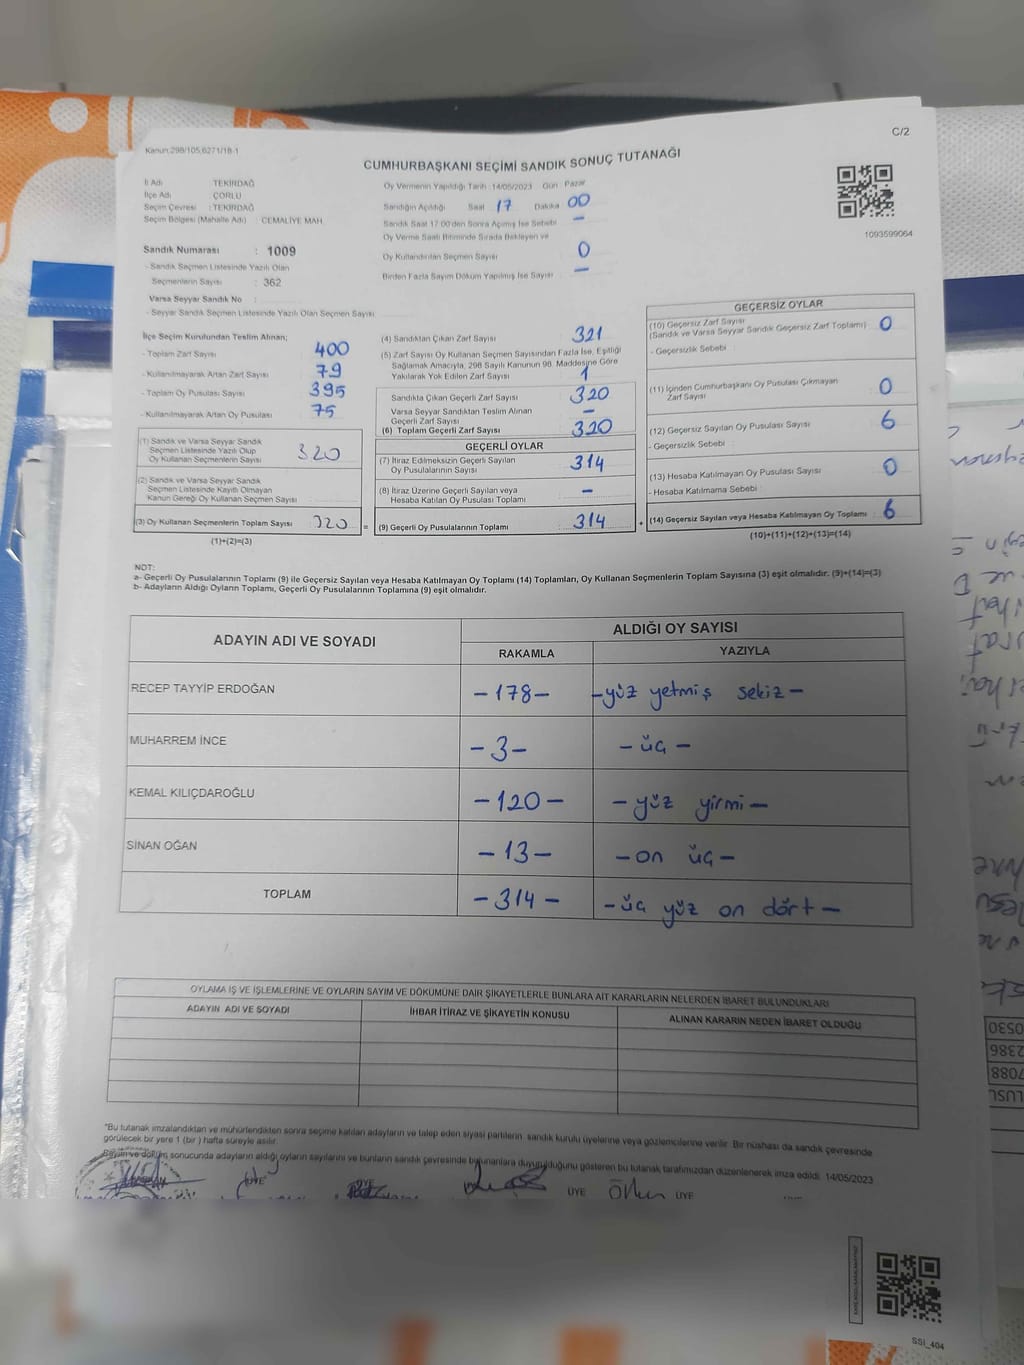 C/2
Kanun:298/105,6271/18-1
CUMHURBAŞKANI SEÇİMİ SANDIK SONUÇ TUTANAĞI
İl Adı TEKİRDAĞ
İlçe Adı ÇORLU
Seçim Çevresi : TEKİRDAĞ
Seçim Bölgesi (Mahalle Adı) CEMALİYE MAH.
Oy Vermenin Yapıldığı Tarih :14/05/2023 Gün Pazar
Sandığın Açıldığı Saat 17 Dakika 00
Sandık Saat 17:00'den Sonra Açılmış İse Sebebi –
Oy Verme Saati Bitiminde Sırada Bekleyen ve
Oy Kullandırılan Seçmen Sayısı 0
Birden Fazla Sayım Döküm Yapılmış İse Sayısı –
1093599064
Sandık Numarası : 1009
- Sandık Seçmen Listesinde Yazılı Olan
Seçmenlerin Sayısı : 362
Varsa Seyyar Sandık No :
- Seyyar Sandık Seçmen Listesinde Yazılı Olan Seçmen Sayısı
İlçe Seçim Kurulundan Teslim Alınan;
- Toplam Zarf Sayısı 400
- Kullanılmayarak Artan Zarf Sayısı 79
- Toplam Oy Pusulası Sayısı 395
- Kullanılmayarak Artan Oy Pusulası 75
(1) Sandık ve Varsa Seyyar Sandık
Seçmen Listesinde Yazılı Olup
Oy Kullanan Seçmenlerin Sayısı 320
(2) Sandık ve Varsa Seyyar Sandık
Seçmen Listesinde Kayıtlı Olmayan
Kanun Gereği Oy Kullanan Seçmen Sayısı
(3) Oy Kullanan Seçmenlerin Toplam Sayısı 320 =
(1)+(2)=(3)
(4) Sandıktan Çıkan Zarf Sayısı 321
(5) Zarf Sayısı Oy Kullanan Seçmen Sayısından Fazla İse, Eşitliği
Sağlamak Amacıyla, 298 Sayılı Kanunun 98. Maddesine Göre
Yakılarak Yok Edilen Zarf Sayısı 1
Sandıkta Çıkan Geçerli Zarf Sayısı 320
Varsa Seyyar Sandıktan Teslim Alınan
Geçerli Zarf Sayısı –
(6) Toplam Geçerli Zarf Sayısı 320
GEÇERLİ OYLAR
(7) İtiraz Edilmeksizin Geçerli Sayılan
Oy Pusulalarının Sayısı 314
(8) İtiraz Üzerine Geçerli Sayılan veya
Hesaba Katılan Oy Pusulası Toplamı –
(9) Geçerli Oy Pusulalarının Toplamı 314 +
GEÇERSİZ OYLAR
(10) Geçersiz Zarf Sayısı
(Sandık ve Varsa Seyyar Sandık Geçersiz Zarf Toplamı) : 0
- Geçersizlik Sebebi :
(11) İçinden Cumhurbaşkanı Oy Pusulası Çıkmayan
Zarf Sayısı : 0
(12) Geçersiz Sayılan Oy Pusulası Sayısı : 6
- Geçersizlik Sebebi :
(13) Hesaba Katılmayan Oy Pusulası Sayısı : 0
- Hesaba Katılmama Sebebi :
(14) Geçersiz Sayılan veya Hesaba Katılmayan Oy Toplamı : 6
(10)+(11)+(12)+(13)=(14)
NOT:
a- Geçerli Oy Pusulalarının Toplamı (9) ile Geçersiz Sayılan veya Hesaba Katılmayan Oy Toplamı (14) Toplamları, Oy Kullanan Seçmenlerin Toplam Sayısına (3) eşit olmalıdır. (9)+(14)=(3)
b- Adayların Aldığı Oyların Toplamı, Geçerli Oy Pusulalarının Toplamına (9) eşit olmalıdır.
ADAYIN ADI VE SOYADI ALDIĞI OY SAYISI
RAKAMLA YAZIYLA
RECEP TAYYİP ERDOĞAN –178– –yüz yetmiş sekiz–
MUHARREM İNCE –3– –üç–
KEMAL KILIÇDAROĞLU –120– –yüz yirmi–
SİNAN OĞAN –13– –on üç–
TOPLAM –314– –üç yüz on dört–
OYLAMA İŞ VE İŞLEMLERİNE VE OYLARIN SAYIM VE DÖKÜMÜNE DAİR ŞİKAYETLERLE BUNLARA AİT KARARLARIN NELERDEN İBARET BULUNDUKLARI
ADAYIN ADI VE SOYADI İHBAR İTİRAZ VE ŞİKAYETİN KONUSU ALINAN KARARIN NEDEN İBARET OLDUĞU
*Bu tutanak imzalandıktan ve mühürlendikten sonra seçime katılan adayların ve talep eden siyasi partilerin sandık kurulu üyelerine veya gözlemcilerine verilir. Bir nüshası da sandık çevresinde
görülecek bir yere 1 (bir ) hafta süreyle asılır.
Sayım ve döküm sonucunda adayların aldığı oyların sayılarını ve bunların sandık çevresinde bulunanlara duyurulduğunu gösteren bu tutanak tarafımızdan düzenlenerek imza edildi. 14/05/2023
ÜYE ÜYE ÜYE ÜYE
SSİ_404